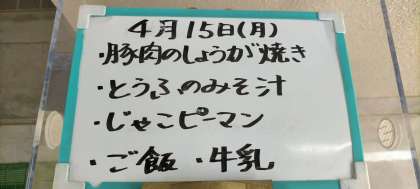 4月15日(月)
・豚肉のしょうが焼き
・とうふのみそ汁
・じゃこピーマン
・ご飯 ・牛乳